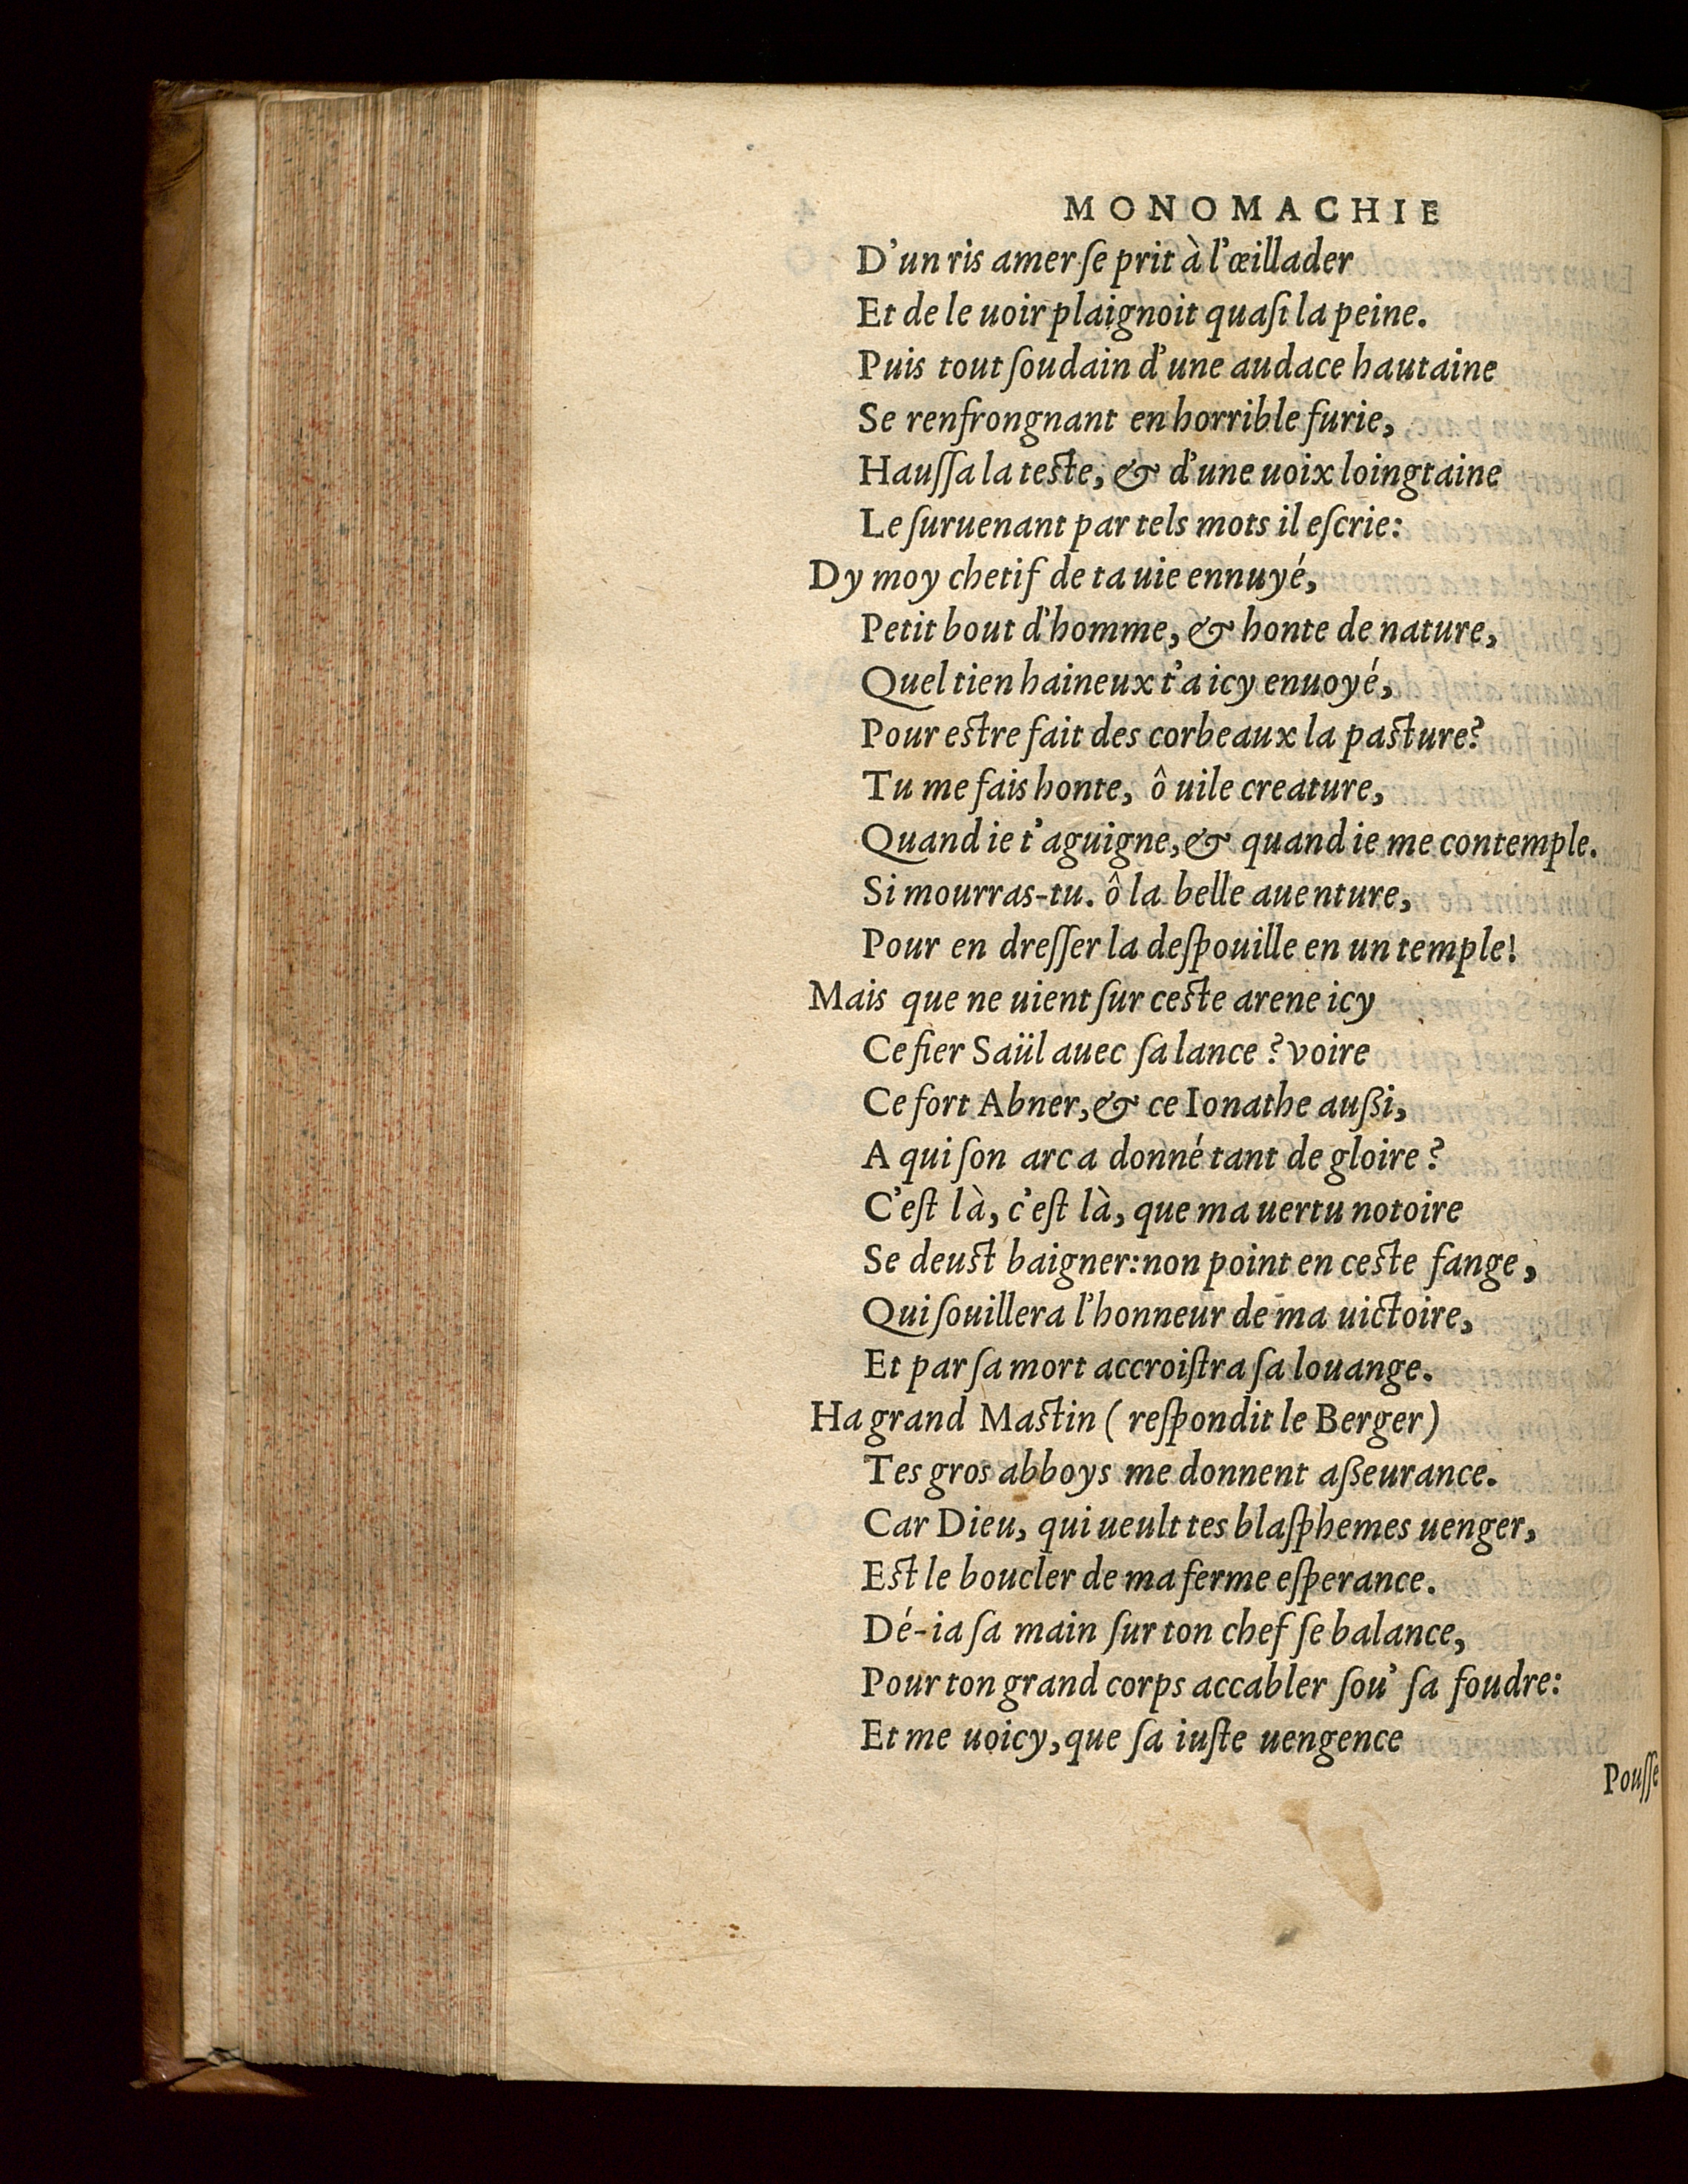 MONOMACHIE
D'un ris amer ſe prit à l'œillader
Et de le uoir plaignoit quaſi la peine.
Puis tout ſoudain d'une audace hautaine
Se renfrongnant en horrible furie,
Hauſſa la teſte, & d'une uoix loingtaine
Le ſuruenant par tels mots il eſcrie:
Dy moy chetif de ta uie ennuyé,
Petit bout d'homme, & honte de nature,
Quel tien haineux t'a icy enuoyé,
Pour eſtre fait des corbeaux la paſture?
Tu me fais honte, ô uile creature,
Quand ie t'aguigne, & quand ie me contemple.
Si mourras-tu. ô la belle auenture,
Pour en dreſſer la deſpouille en un temple!
Mais que ne uient ſur ceſte arene icy
Ce fier Saül auec ſa lance? voire
Ce fort Abner, & ce Ionathe außi,
A qui ſon arc a donné tant de gloire?
C'eſt là, c'eſt là, que ma uertu notoire
Se deuſt baigner: non point en ceſte fange,
Qui ſouillera l'honneur de ma uictoire,
Et par ſa mort accroiſtra ſa louange.
Ha grand Maſtin (reſpondit le Berger)
Tes gros abboys me donnent aßeurance.
Car Dieu, qui ueult tes blaſphemes uenger,
Eſt le boucler de ma ferme eſperance.
Dé-ia ſa main ſur ton chef ſe balance,
Pour ton grand corps accabler ſou' ſa foudre:
Et me uoicy, que ſa iuſte uengence
Pouſſe